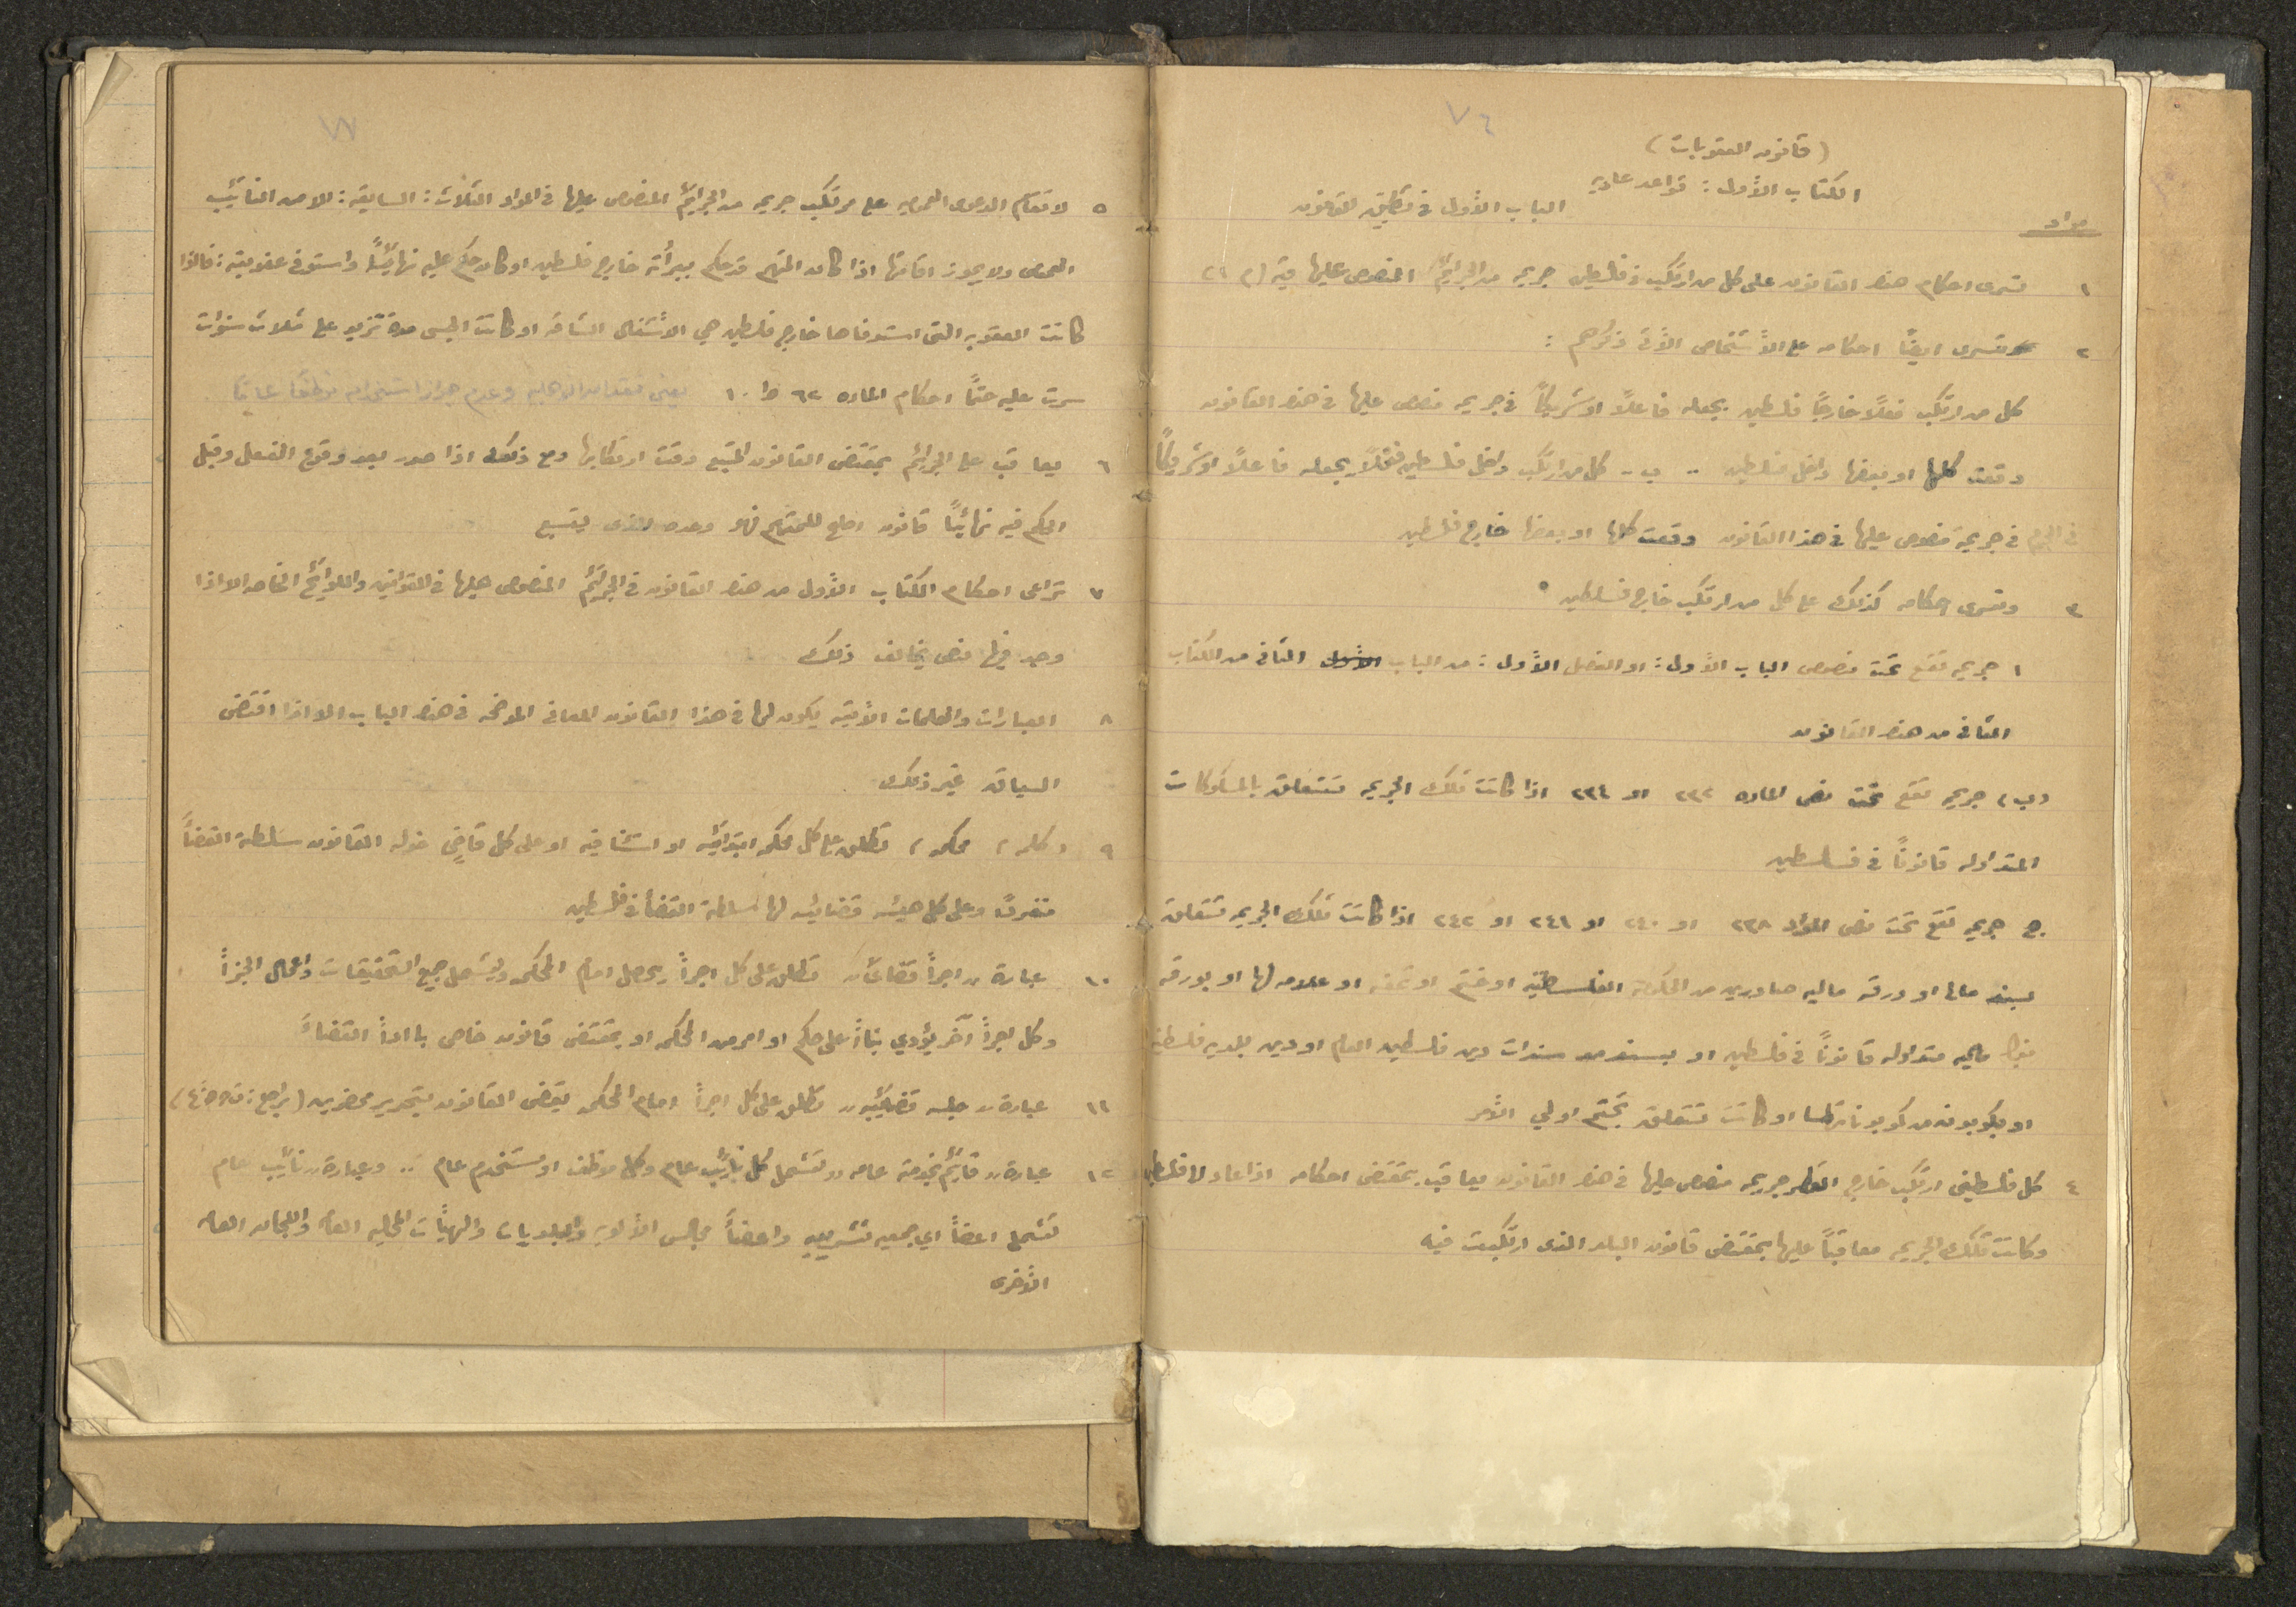 ٧٤
(قانون العقوبات)
الكتاب الأول : قواعد عامة
الباب الأول في تطبيق القانون
مواد
١ تسرى احكام هذا القانون على كل من ارتكب في فلسطين جريمه من الجرائم المنصوص عليها فيه (م ٢٦
٢ وتسرى ايضاً احكامه على الأشخاص الأتى ذكرهم :
كل من ارتكب فعلاً خارجاً فلسطين يجعله فاعلاً او شريكاً في جريمه منصوص عليها في هذا القانون
وقعت كلها او بعضها داخل فلسطين .. ب - كل من ارتكب داخل فلسطين فعلاً يجعله فاعلاً او شريكاً
في الجرم في جريمة منصوص عليها في هذا القانون وقعت كلها او بعضها خارج فلسطين
٣ وتسرى احكامه كذلك على كل من ارتكب خارج فلسطين
١ جريمه تقع تحت نصوص الباب الأول : او الفصل الأول : من الباب الأول الثانى من الكتاب
الثانى من هذا القانون
(ب) جريمه تقع تحت نص الماده ٢٣٢ او ٢٣٤ اذا كانت تلك الجريمه تتعلق بالمسكوكات
المتداوله قانوناً في فلسطين
ج جريمه تقع تحت نص المواد ٢٣٨ او ٢٤٠ او ٢٤١ او ٢٤٢ اذا كانت تلك الجريمه تتعلق
بسند مالى او ورقه ماليه صادرين من الحكومة الفلسطينية او ختم او تمغه او علامه لها او بورقه
بنك ماليه متداوله قانوناً في فلسطين او بسند من سندات دين فلسطين العام او دين بلديه فلسطينيه
او بكوبون من كوبوناتها او كانت تتعلق بختم اولي الأمر
٤ كل فلسطينى ارتكب خارج القطر جريمه منصوص عليها في هذا القانون يعاقب بمقتضى احكامه اذا عاد الى فلسطين
وكانت تلك الجريمه معاقباً عليها بمقتضى قانون البلد الذى ارتكبت فيه
٧٧
٥ لا تقام الدعوى العموميه على مرتكب جريمه من الجرائم المنصوص عليها في المواد الثلاث : السابقة : الا من النائب
العمومى ولا يجوز اقامتها اذا كان المتهم قد حكم ببرأته خارج فلسطين او كان حكم عليه نهائياً واستوفى عقوبته : فاذا
كانت العقوبه التى استوفاها خارج فلسطين هي الأشغال الشاقه او كانت الحبس مدة تزيد على ثلاث سنوات
سرت عليه حتماً احكام الماده ٦٢ يعنى فقدان الاهلية وعدم جواز استخدامه موظفاً عاماً
٦ يعاقب على الجرائم بمقتضى القانون المتبع وقت ارتكابها ومع ذلك اذا صدر بعد وقوع الفعل وقبل
الحكم فيه نهائياً قانون اصلح للمتهم فهو وحده الذى يتبع
٧ تراعى احكام الكتاب الأول من هذا القانون في الجرائم المنصوص عليها في القوانين واللوائح الخاصه الا اذا
وجد فيها نص يخالف ذلك
٨ العبارات والكلمات الأتيه يكون لها في هذا القانون المعانى الموضحه في هذا الباب الا اذا اقتضى
السياق غير ذلك
٩ (كلمه) محكمه) تطلق على كل محكمه ابتدائيه او استئنافيه او على كل قاضٍ خوله القانون سلطة القضأ
منفرداً وعلى كل هيئه قضائيه لها سلطة القضأ في فلسطين
١٠ عبارة „ اجرأ قضائى „ تطلق على كل اجرأ يحصل امام المحكمه ويشمل جميع التحقيقات واعمال الخبرأ
وكل اجرأ آخر يؤدي بنأ على حكم او امر من المحكمه او بمقتضى قانون خاص باادأ القضاء
١١ عبارة „ جلسه قضائيه „ تطلق على كل اجرأ امام المحكمه يقضى القانون بتحرير محضر به
١٢ عبارة „ قائم بخدمة عامه „ تشمل كل نائب عام وكل موظف او مستخدم عام .. وعبارة „ نائب عام
تشمل اعضأ اي جمعيه تشريعيه واعضأ مجالس الألويه والبلديات والهيئات المحليه العامه واللجان العامه
الأخرى